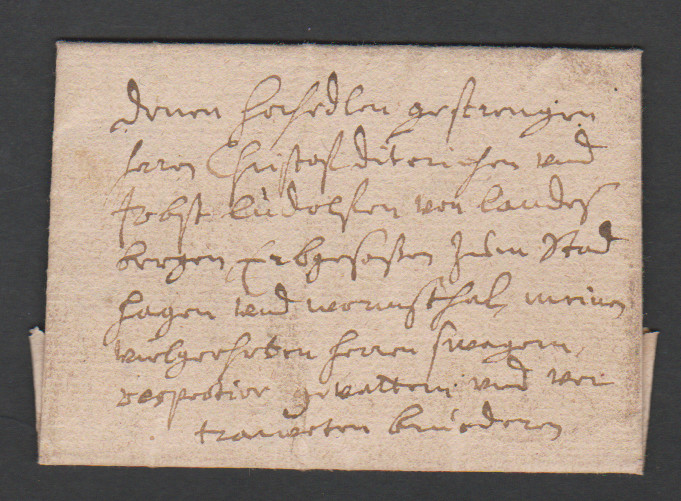 Denen hochedlen gestrengen
herren Christoff Diterichen und
Jobst Ludolffen von Landes
bergen, Erbgesaßen zum Stad
hagen und wormsthal, meinen
vielgeehrten herren swagern,
respective gevattern und ver
traweten bruederen